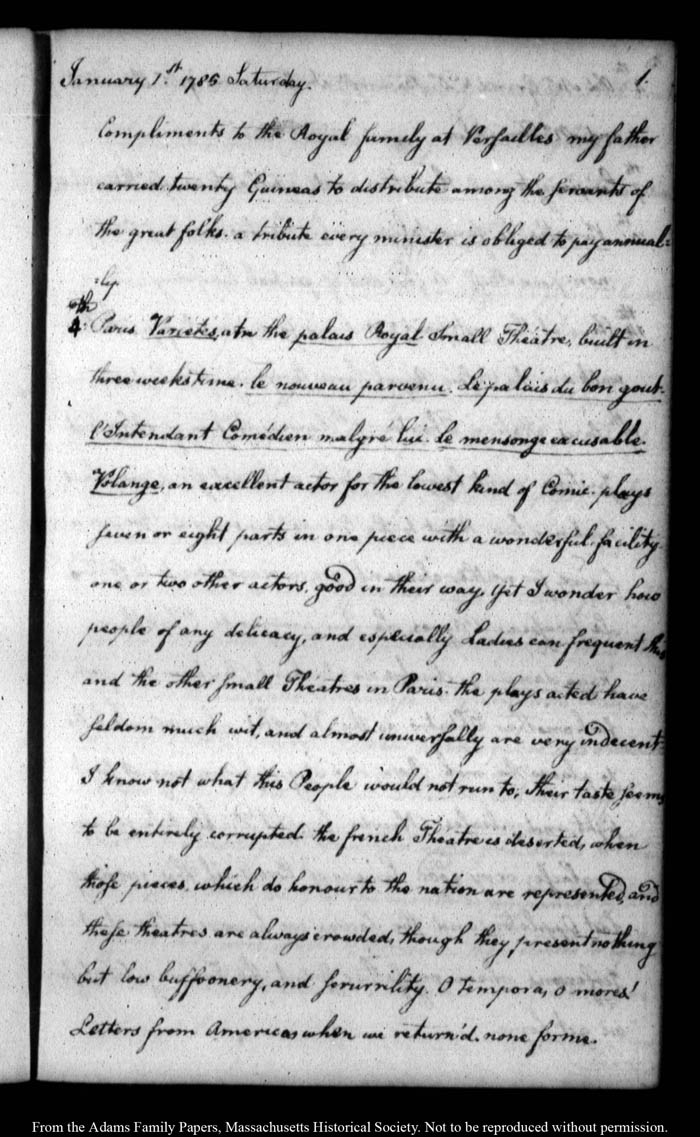 January 1.st 1785 Saturday. 1.
Compliments to the Royal family at Versailles my father
carried twenty Guineas to distribute among the servants of
the great folks. a tribute every minister is obliged to pay annual=
=ly.
4.th Paris Varietés, the palais Royal. Small Théatre, built in
three weeks time. le nouveau parvenu. Le palais du bon gout.
l'Intendant Comédien malgré lui. Le mensonge excusable.
Volange, an excellent actor for the lowest kind of Comic. plays
seven or eight parts in one piece with a wonderful facility.
one or two other actors, good in their way. Yet I wonder how
people of any delicacy, and especially Ladies can frequent this
and the other small Theatres in Paris. the plays acted have
seldom much wit, and almost universally are very indecent.
I know not what this People would not run to, their taste seems
to be entirely corrupted. the french Theatre is deserted, when
those pieces, which do honour to the nation are represented, and
these theatres are always crowded, though they present nothing
but low buffoonery, and scurrility. O tempora, o mores!
Letters from America when we return'd. none for me.
From the Adams Family Papers, Massachusetts Historical Society. Not to be reproduced without permission.